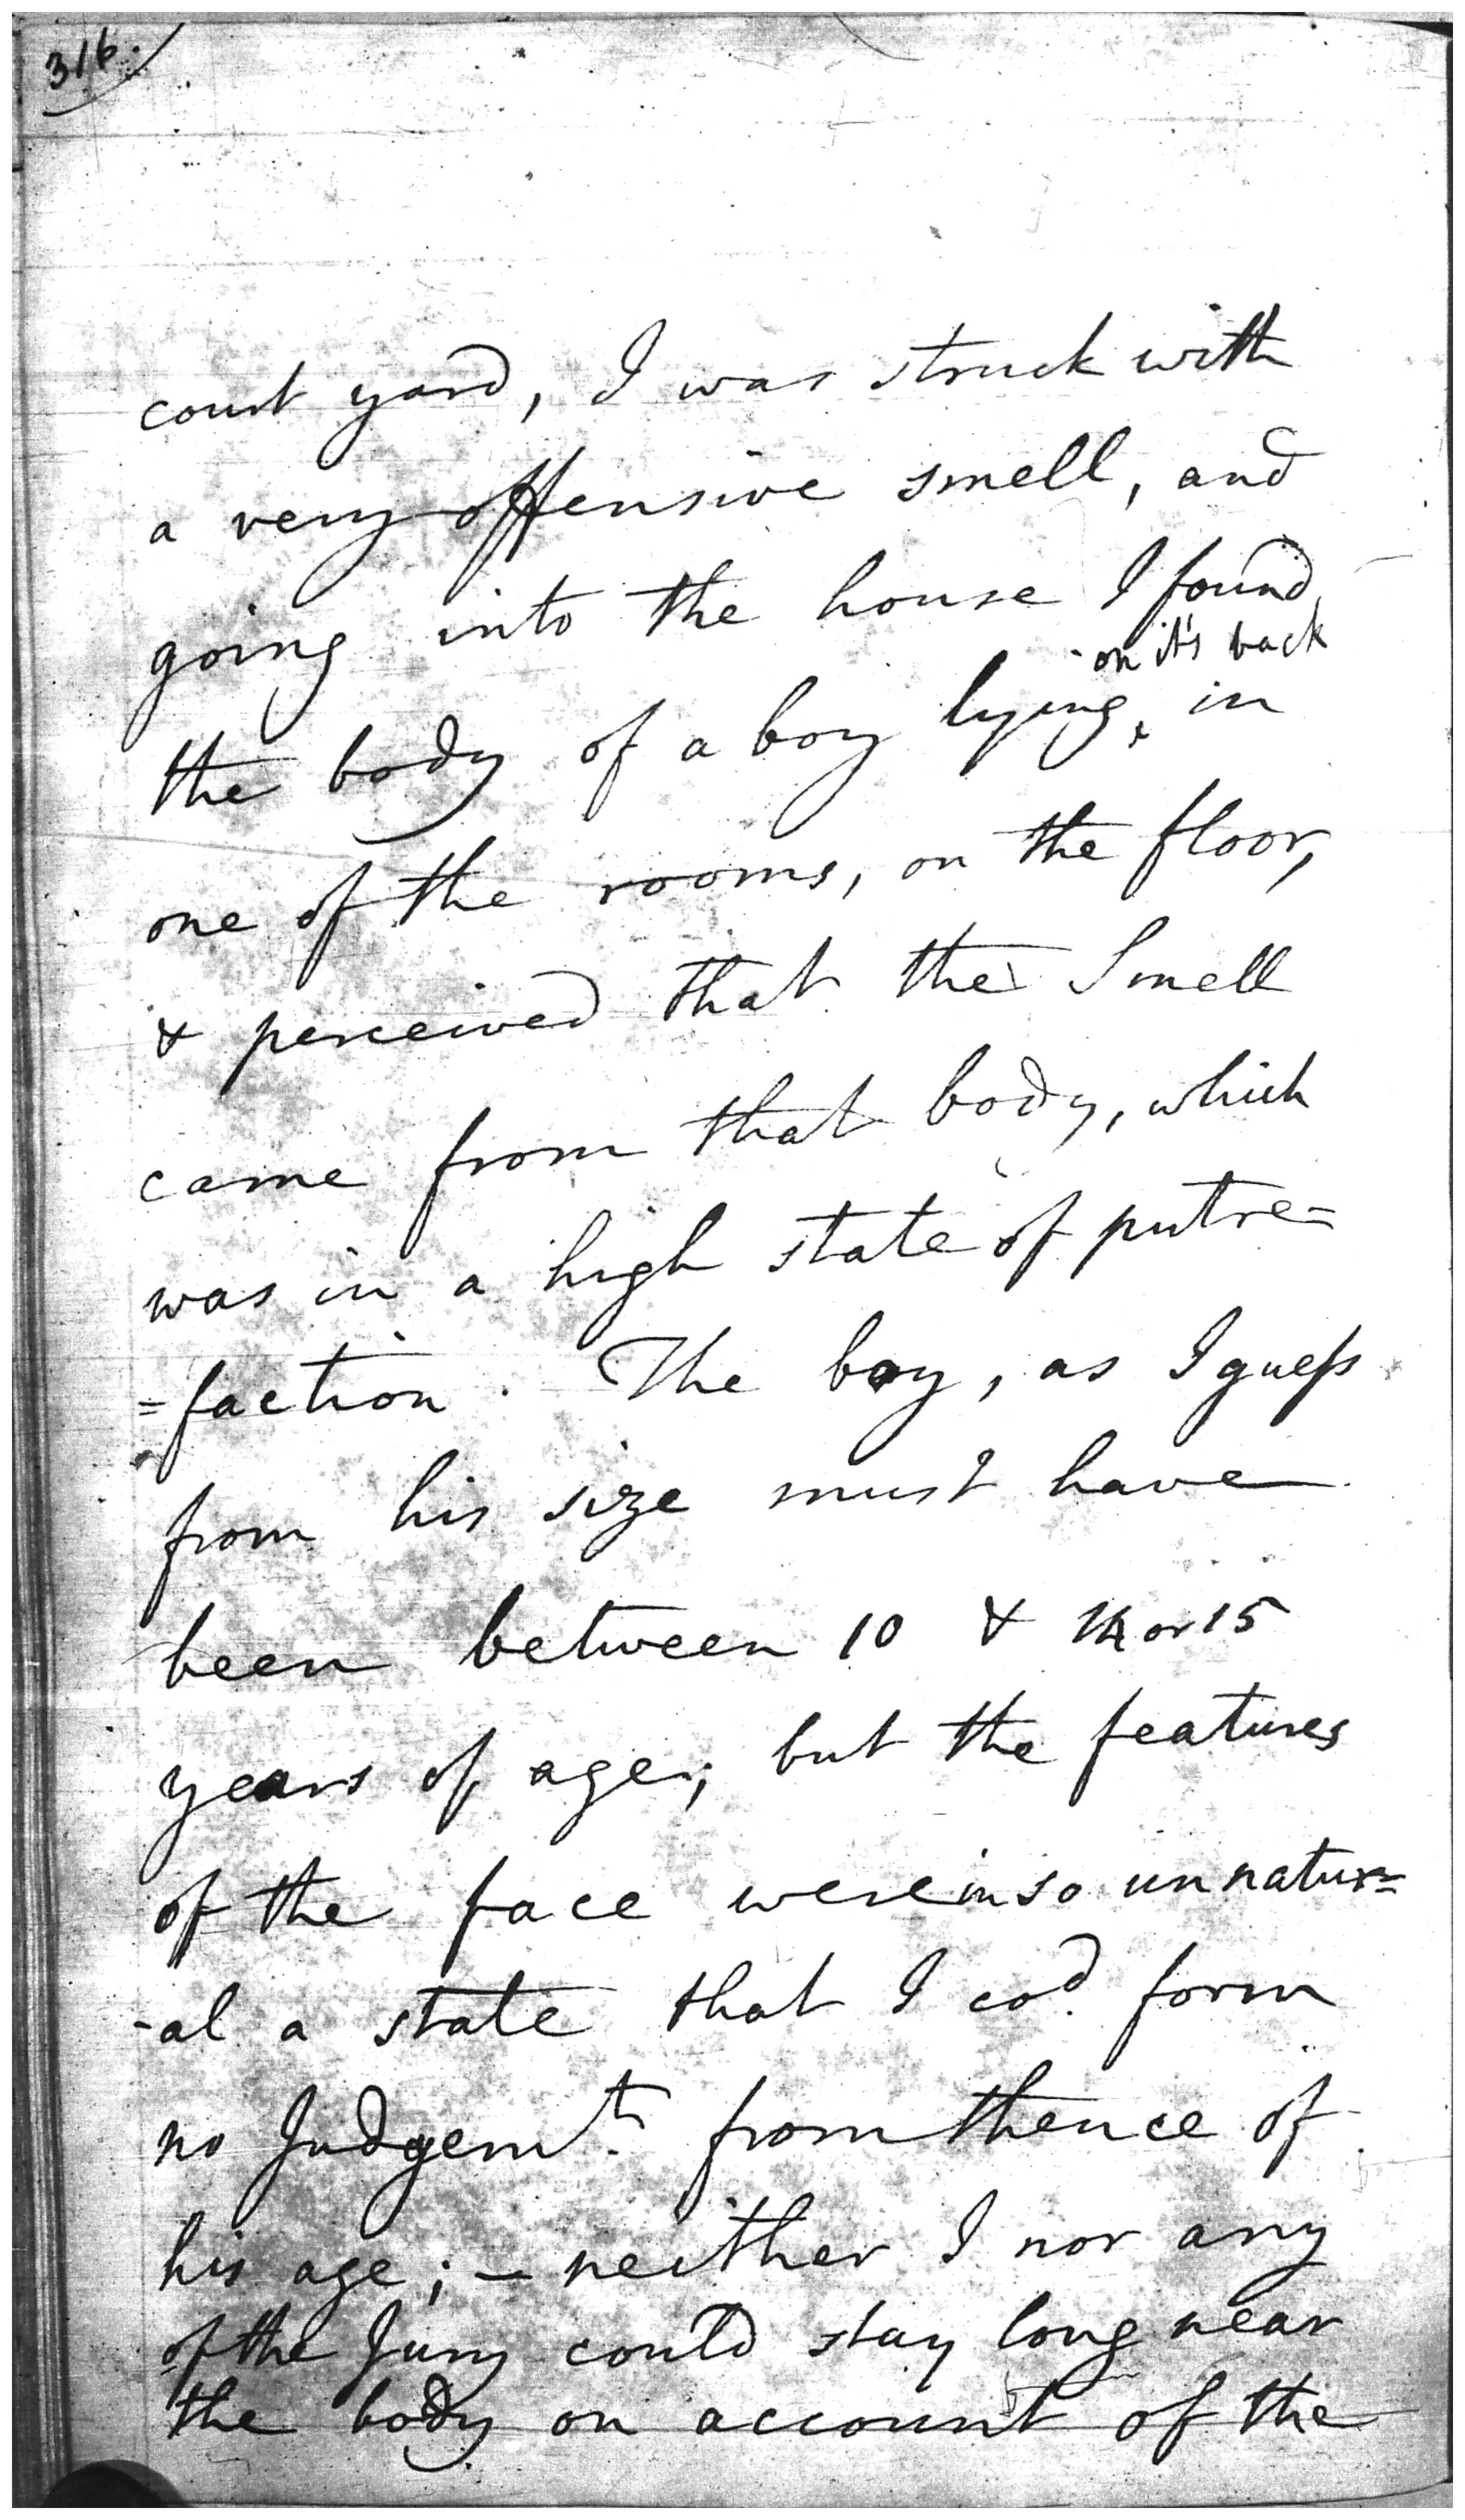 316.
court yard, I was struck with
a very offensive smell, and
going into the house I found
on it's back
the body of a boy lying in
one of the rooms, on the floor,
& perceived that the Smell
came from that body, which
was in a high state of putre=
=faction. The boy, as I guess
from his size must have
been between 10 & 14 or 15
years of age; but the features
of the face were in so unnatur=
-al a state that I cod. form
no Judgemt. from thence of
his age; - neither I nor any
of the Jury could stay long near
the body on account of the